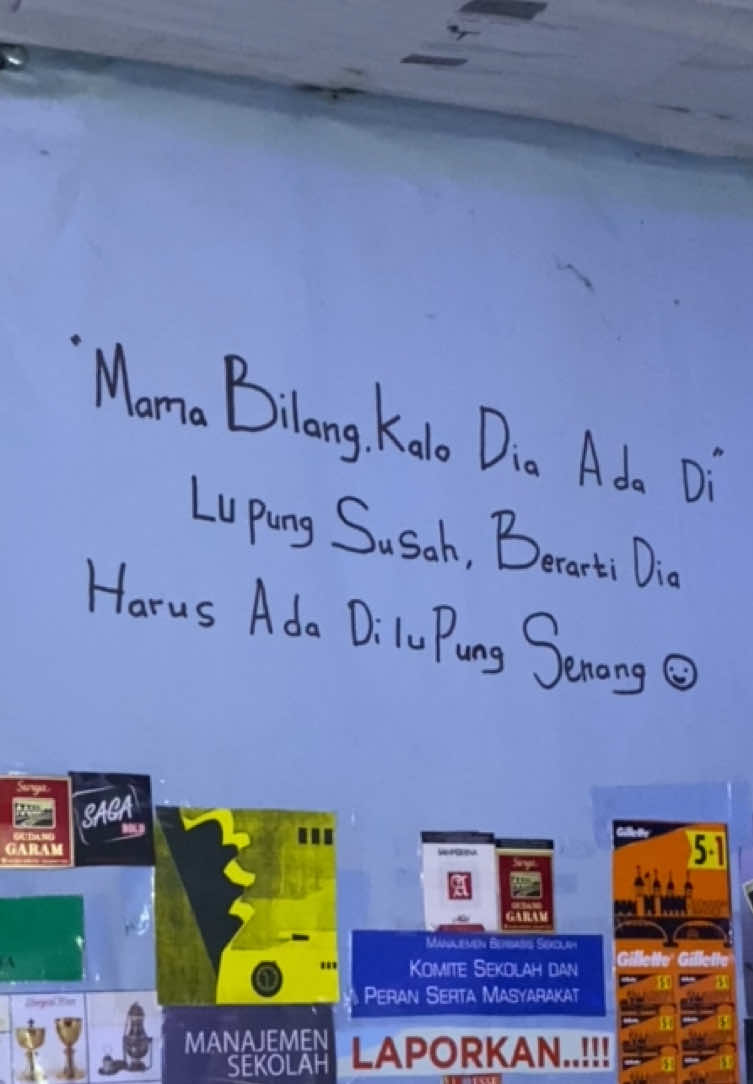 "Mama Bilang. Kalo Dia Ada Di"
Lupung Susah, Berarti Dia
Harus Ada DiluPung Senang
Surya
GUDANG
GARAM
SAGA
BOLD
SAMPOERNA
A
Surya
GUDANG
GARAM
Gillette
5-1
Gillette Gillette
MANAJEMEN BERBASIS SEKOLAH
KOMITE SEKOLAH DAN
PERAN SERTA MASYARAKAT
MANAJEMEN
SEKOLAH
LAPORKAN..!!!